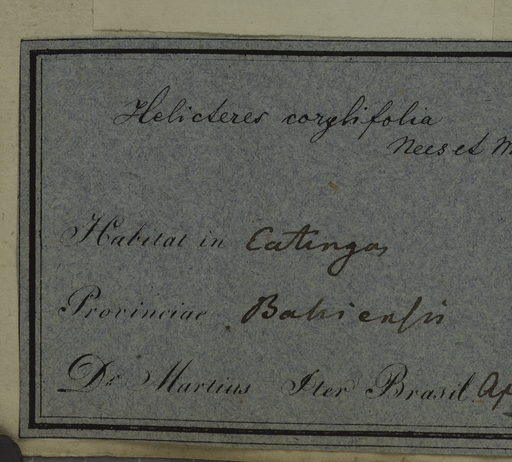 Helicteres corylifolia
Nees et M
Habitat in Catingas
Provinciae Bahiensis
Dr. Martius Iter Brasil. Ap